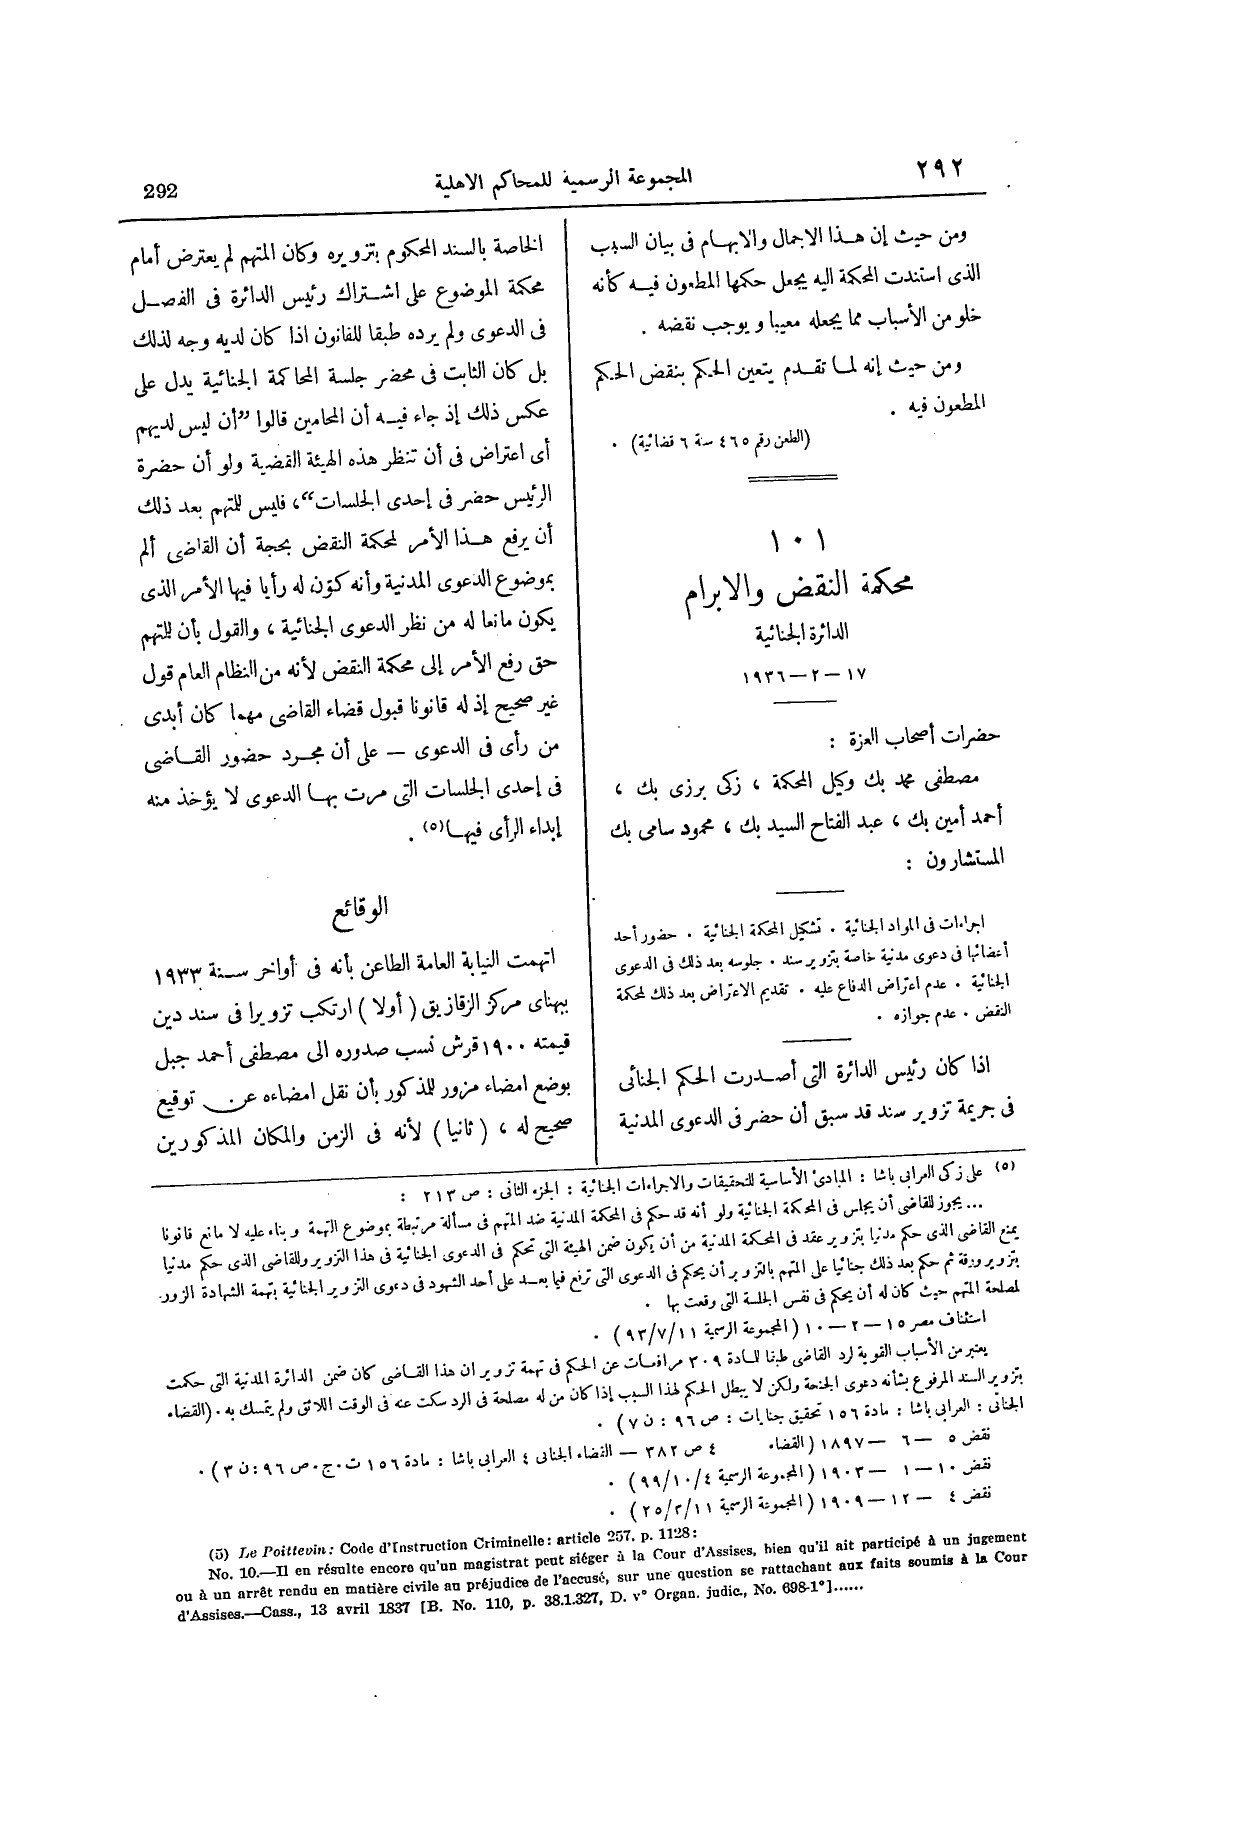 ٢٩٢
المجموعة الرسمية للمحاكم الاهلية
292
ومن حيث إن هذا الاجمال والابهام فى بيان السبب
الذى استندت المحكمة اليه يجعل حكمها المطعون فيه كأنه
خلو من الأسباب مما يجعله معيبا ويوجب نقضه .
ومن حيث إنه لما تقدم يتعين الحكم بنقض الحكم
المطعون فيه .
(الطعن رقم ٤٦٥ سنة ٦ قضائية) .
١٠١
محكمة النقض والابرام
الدائرة الجنائية
١٧ — ٢ — ١٩٣٦
حضرات أصحاب العزة :
مصطفى محمد بك وكيل المحكمة ، زكى برزى بك ،
أحمد أمين بك ، عبد الفتاح السيد بك ، محمود سامى بك
المستشارون :
اجراءات فى المواد الجنائية . تشكيل المحكمة الجنائية . حضور أحد
أعضائها فى دعوى مدنية خاصة بتزوير سند . جلوسه بعد ذلك فى الدعوى
الجنائية . عدم اعتراض الدفاع عليه . تقديم الاعتراض بعد ذلك لمحكمة
النقض . عدم جوازه .
اذا كان رئيس الدائرة التى أصدرت الحكم الجنائى
فى جريمة تزوير سند قد سبق أن حضر فى الدعوى المدنية
الخاصة بالسند المحكوم بتزويره وكان المتهم لم يعترض أمام
محكمة الموضوع على اشتراك رئيس الدائرة فى الفصل
فى الدعوى ولم يرده طبقا للقانون اذا كان لديه وجه لذلك
بل كان الثابت فى محضر جلسة المحاكمة الجنائية يدل على
عكس ذلك إذ جاء فيه أن المحامين قالوا ”أن ليس لديهم
أى اعتراض فى أن تنظر هذه الهيئة القضية ولو أن حضرة
الرئيس حضر فى إحدى الجلسات“، فليس للمتهم بعد ذلك
أن يرفع هذا الأمر لمحكمة النقض بحجة أن القاضى ألم
بموضوع الدعوى المدنية وأنه كوّن له رأيا فيها الأمر الذى
يكون مانعا له من نظر الدعوى الجنائية ، والقول بأن للمتهم
حق رفع الأمر إلى محكمة النقض لأنه من النظام العام قول
غير صحيح إذ له قانونا قبول قضاء القاضى مهما كان أبدى
من رأى فى الدعوى — على أن مجرد حضور القاضى
فى إحدى الجلسات التى مرت بها الدعوى لا يؤخذ منه
إبداء الرأى فيها(٥) .
الوقائع
اتهمت النيابة العامة الطاعن بأنه فى أواخر سنة ١٩٣٣
ببهناى مركز الزقازيق (أولا) ارتكب تزويرا فى سند دين
قيمته ١٩٠٠ قرش نسب صدوره الى مصطفى أحمد جبل
بوضع امضاء مزور للمذكور بأن نقل امضاءه عن توقيع
صحيح له ، (ثانيا) لأنه فى الزمن والمكان المذكورين
(٥) على زكى العرابى باشا : المبادئ الأساسية للتحقيقات والاجراءات الجنائية : الجزء الثانى : ص ٢١٣ :
... يجوز للقاضى أن يجلس فى المحكمة الجنائية ولو أنه قد حكم فى المحكمة المدنية ضد المتهم فى مسألة مرتبطة بموضوع التهمة وبناء عليه لا مانع قانونا
يمنع القاضى الذى حكم مدنيا بتزوير عقد فى المحكمة المدنية من أن يكون ضمن الهيئة التى تحكم فى الدعوى الجنائية فى هذا التزوير وللقاضى الذى حكم مدنيا
بتزوير ورقة ثم حكم بعد ذلك جنائيا على المتهم بالتزوير أن يحكم فى الدعوى التى ترفع فيما بعد على أحد الشهود فى دعوى التزوير الجنائية بتهمة الشهادة الزور
لمصلحة المتهم حيث كان له أن يحكم فى نفس الجلسة التى وقعت بها .
استئناف مصر ١٥ — ٢ — ١٠ (المجموعة الرسمية ٩٣/٧/١١) .
يعتبر من الأسباب القوية لرد القاضى طبقا للمادة ٣٠٩ مرافعات عن الحكم فى تهمة تزوير ان هذا القاضى كان ضمن الدائرة المدنية التى حكمت
بتزوير السند المرفوع بشأنه دعوى الجنحة ولكن لا يبطل الحكم لهذا السبب إذا كان من له مصلحة فى الرد سكت عنه فى الوقت اللائق ولم يتمسك به . (القضاء
الجنائى : العرابى باشا : مادة ١٥٦ تحقيق جنايات : ص ٩٦ : ن ٧) .
نقض ٥ — ٦ — ١٨٩٧ (القضاء ٤ ص ٣٨٢ — القضاء الجنائى ٤ العرابى باشا : مادة ١٥٦ ت.ج. ص ٩٦ : ن ٣) .
نقض ١٠ — ١ — ١٩٠٣ (المجموعة الرسمية ٩٩/١٠/٤) .
نقض ٤ — ١٢ — ١٩٠٩ (المجموعة الرسمية ٢٥/٢/١١) .
(5) Le Poittevin: Code d'Instruction Criminelle: article 257. p. 1128:
No. 10.—Il en résulte encore qu'un magistrat peut siéger à la Cour d'Assises, bien qu'il ait participé à un jugement
ou à un arrêt rendu en matière civile au préjudice de l'accusé, sur une question se rattachant aux faits soumis à la Cour
d'Assises.—Cass., 13 avril 1837 [B. No. 110, p. 38.1.327, D. v° Organ. judic., No. 698-1°]......